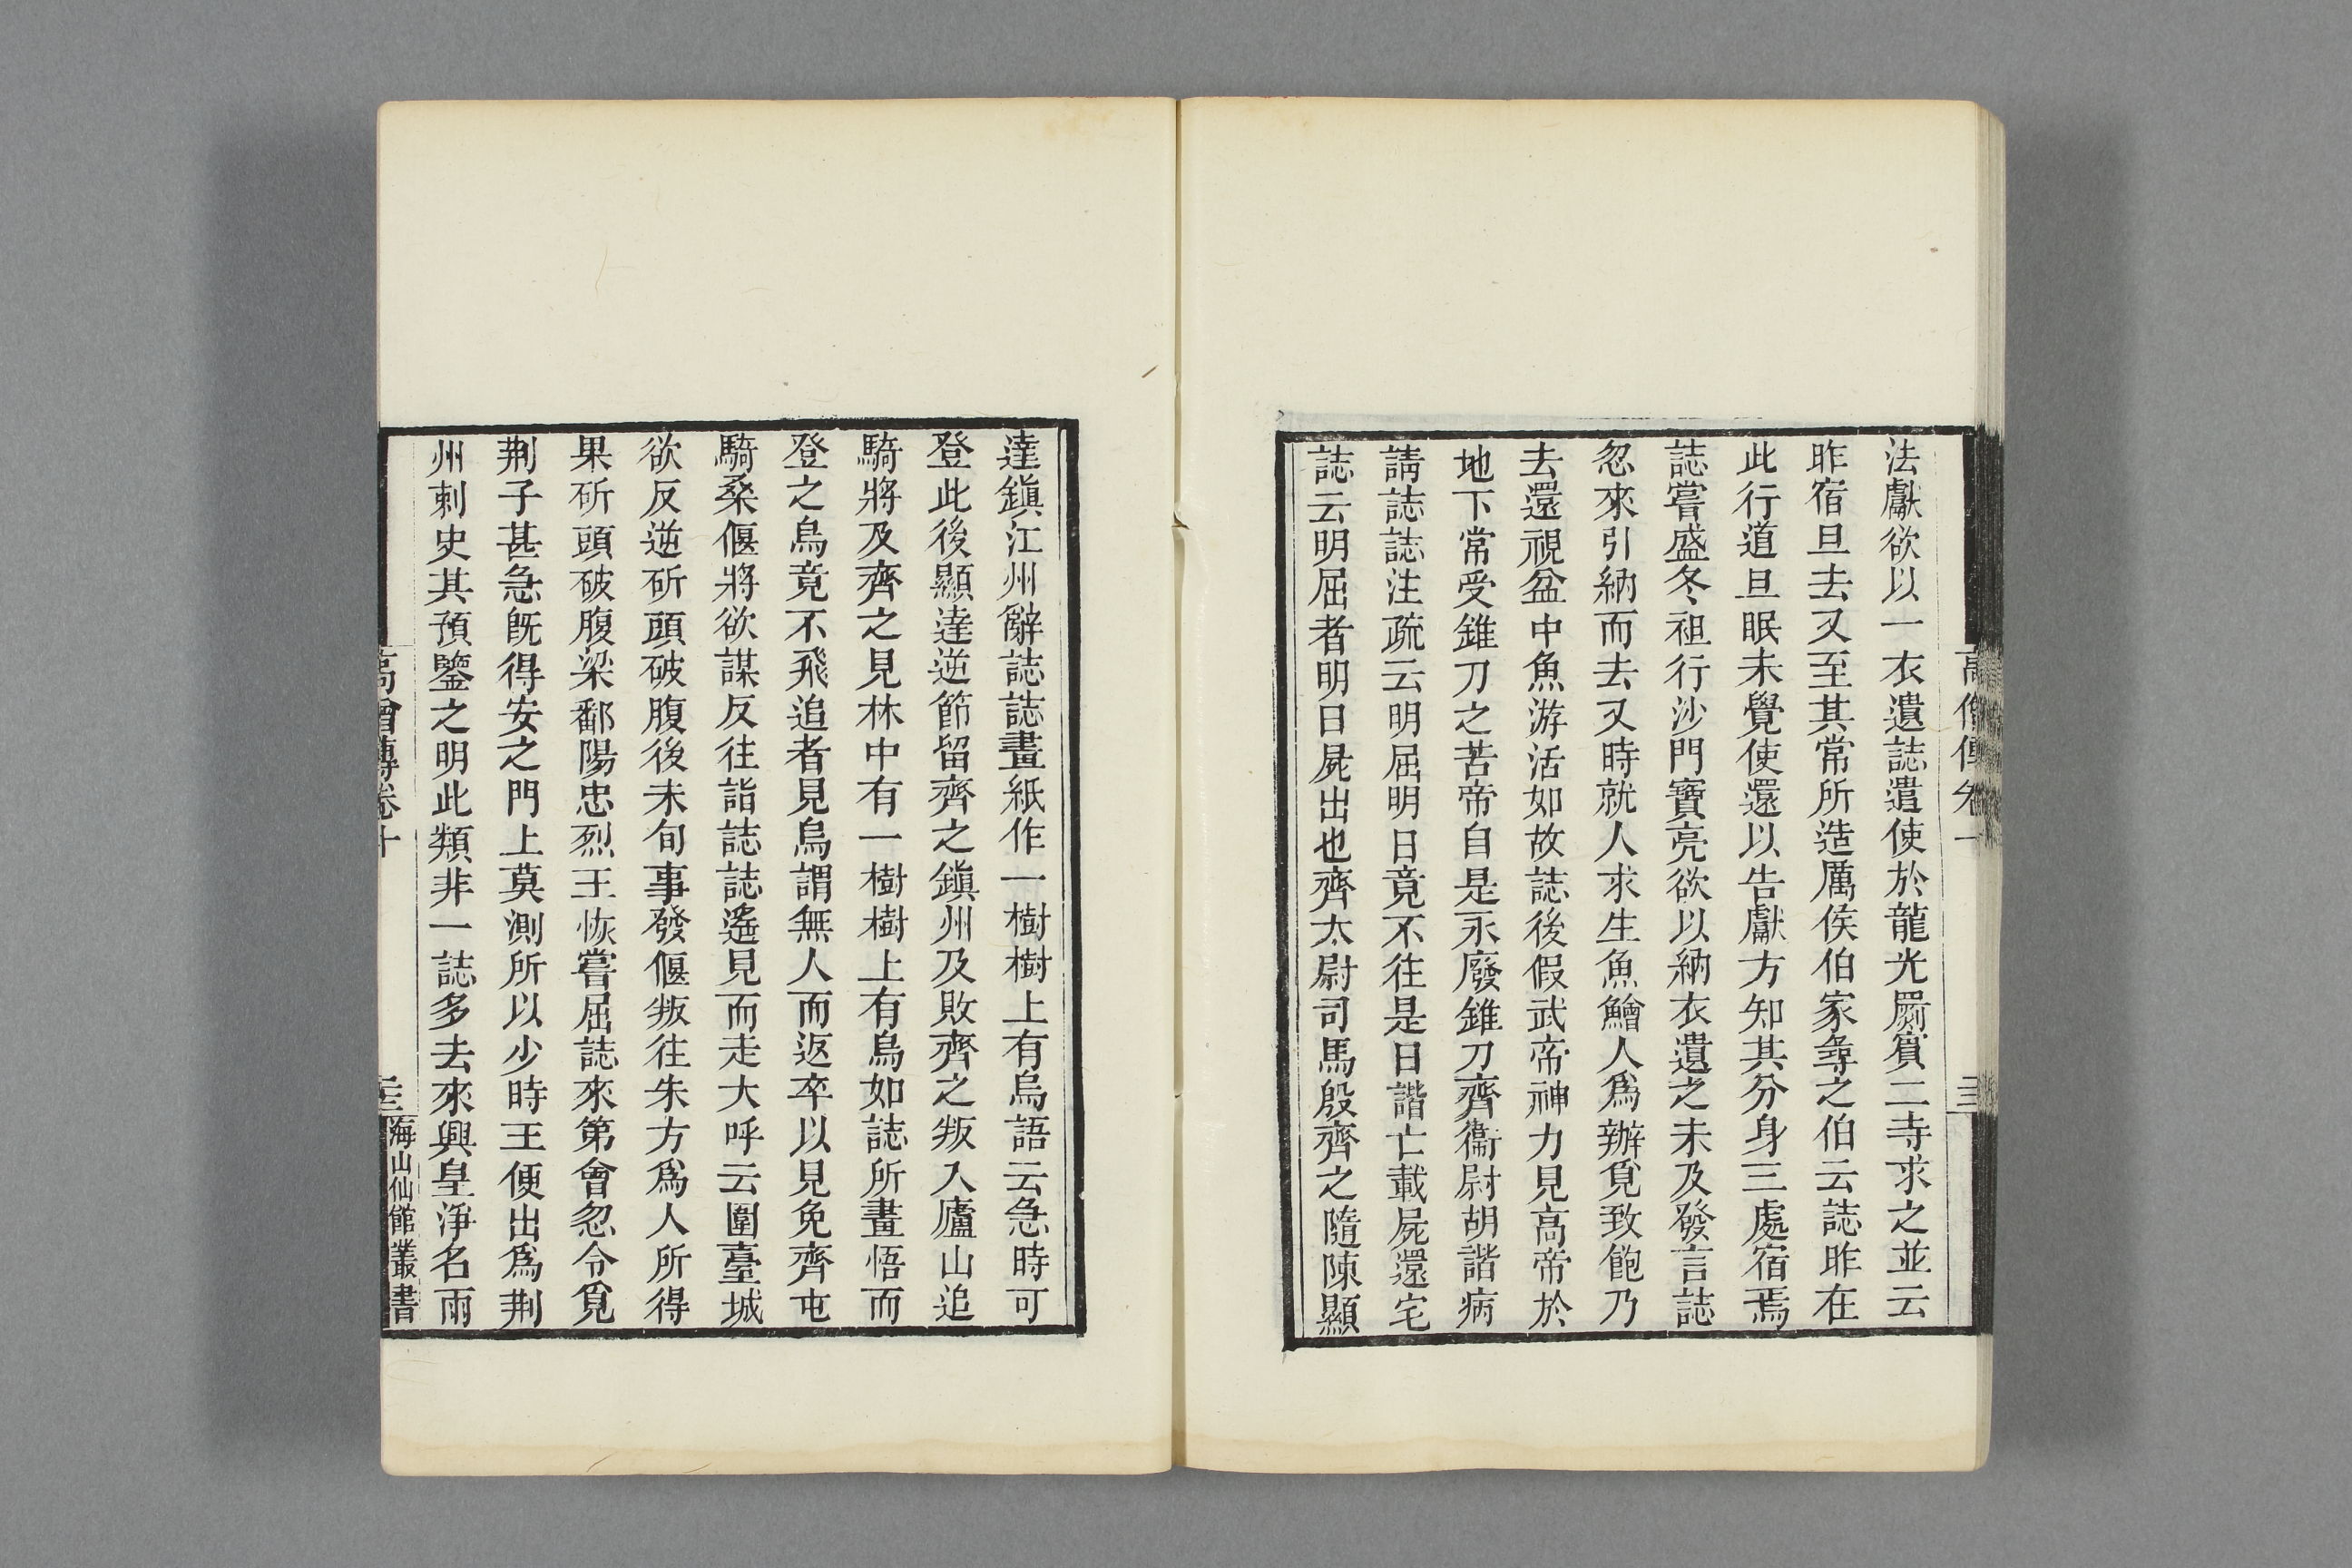 法獻欲以一衣遺誌遣使於龍光罽賓二寺求之並云
昨宿旦去又至其常所造厲侯伯家尋之伯云誌昨在
此行道旦眠未覺使還以告獻方知其分身三處宿焉
誌嘗盛冬袒行沙門寶亮欲以納衣遺之未及發言誌
忽來引納而去又時就人求生魚鱠人爲辦覓致飽乃
去還視盆中魚游活如故誌後假武帝神力見高帝於
地下常受錐刀之苦帝自是永廢錐刀齊衞尉胡諧病
請誌誌注疏云明屈明日竟不往是日諧亡載屍還宅
誌云明屈者明日屍出也齊太尉司馬殷齊之隨陳顯
達鎭江州辭誌誌畫紙作一樹樹上有烏語云急時可
登此後顯達逆節留齊之鎭州及敗齊之叛入廬山追
騎將及齊之見林中有一樹樹上有烏如誌所畫悟而
登之烏竟不飛追者見烏謂無人而返卒以見免齊屯
騎桑偃將欲謀反往詣誌誌遙見而走大呼云圍臺城
欲反逆斫頭破腹後未旬事發偃叛往朱方爲人所得
果斫頭破腹梁鄱陽忠烈王恢嘗屈誌來第會忽令覓
荆子甚急旣得安之門上莫測所以少時王便出爲荆
州刺史其預鑒之明此類非一誌多去來興皇淨名兩
高僧傳卷十
海山仙館叢書